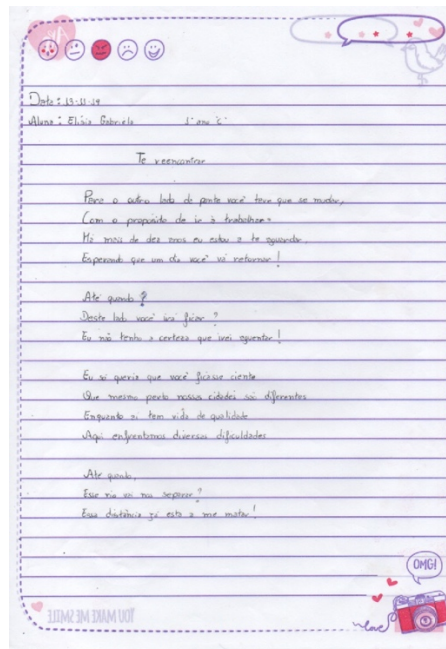 Data: 13-11-19
Aluna: Elisia Gabriela 1° ano "C"
Te reencontrar
Para o outro lado da ponte você teve que se mudar,
Com o propósito de ir à trabalhar.
Há mais de dez anos eu estou a te aguardar,
Esperando que um dia você vá retornar!
Até quando?
Deste lado você irá ficar?
Eu não tenho a certeza que irei aguentar!
Eu só queria que você ficasse ciente
Que mesmo perto nossas cidades são diferentes
Enquanto aí tem vida de qualidade
Aqui enfrentamos diversas dificuldades
Até quando,
Esse rio vai nos separar?
Essa distância já está a me matar!
OMG!
love
YOU MAKE ME SMILE